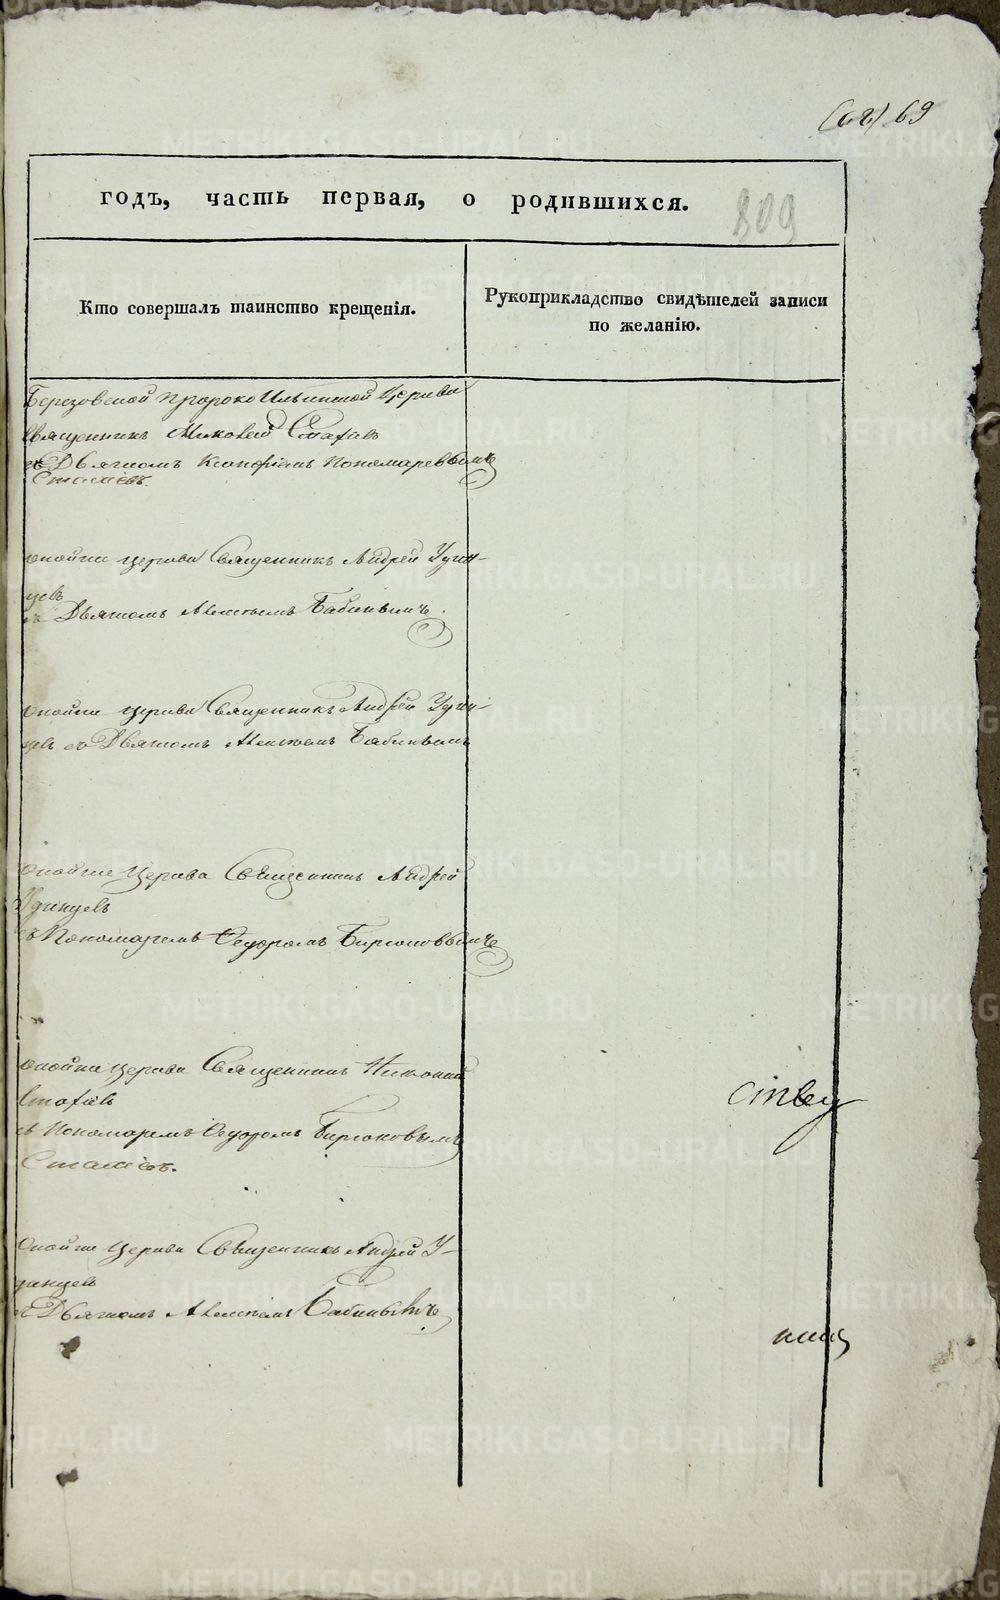 69
годъ, часть первая, о родившихся.
809
Кто совершалъ таинство крещенія.
Рукоприкладство свидѣтелей записи
по желанію.
Березовской Пророко Ильинской Церкви
Священникъ
съ Дьячкомъ Пономаревымъ
онойже церкви Священникъ Андрей Удин-
цевъ
съ Дьячкомъ Алексѣемъ Бабинымъ
онойже церкви Священникъ Андрей Удин-
цевъ съ Дьячкомъ Алексѣемъ Бабинымъ
онойже Церкви Священникъ Андрей
Удинцевъ
съ Пономаремъ Ѳедоромъ Бирюковымъ
онойже Церкви Священникъ
съ Пономаремъ Ѳедоромъ Бирюковымъ
онойже Церкви Священникъ Андрей У-
динцевъ
съ Дьячкомъ Алексѣемъ Бабинымъ
METRIKI.GASO-URAL.RU